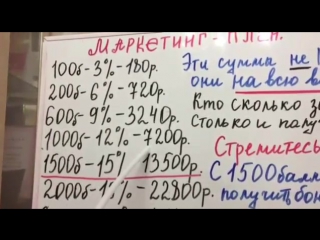 МАРКЕТИНГ - ПЛАН.
100б - 3% - 180р.
200б - 6% - 720р.
600б - 9% - 3240р.
1000б - 12% - 7200р.
1500б - 15% 13500р.
2000б - - 22800р.
Эти сумма не
они на всю
Кто сколько
столько и
Стремитесь
С 1500
получить